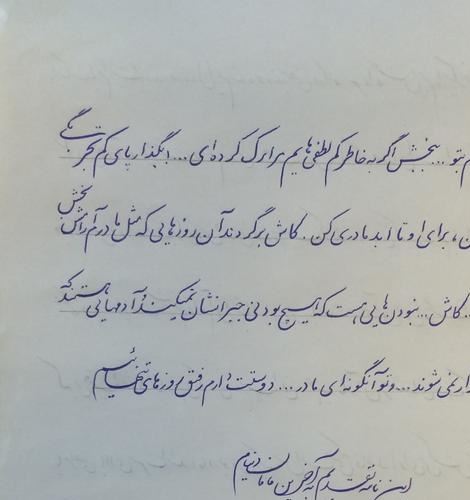 بتو... ببخش اگر به خاطر کم لطفی هایم مرا ترک کرده ای... بگذار پای کم تجربگی
، برای او تا ابد مادری کن. کاش برگردند آن روزهایی که مثل مادرم آرامش بخش
... کاش... نبودن هایی هست که هیچ بودنی جبرانشان نمیکند و آدمهایی هستند که
نمی شوند... و تو آنگونه ای مادر... دوستت دارم رفیق روزهای تنهائیم
این نامه تقدیم به آخرین مامان دنیام